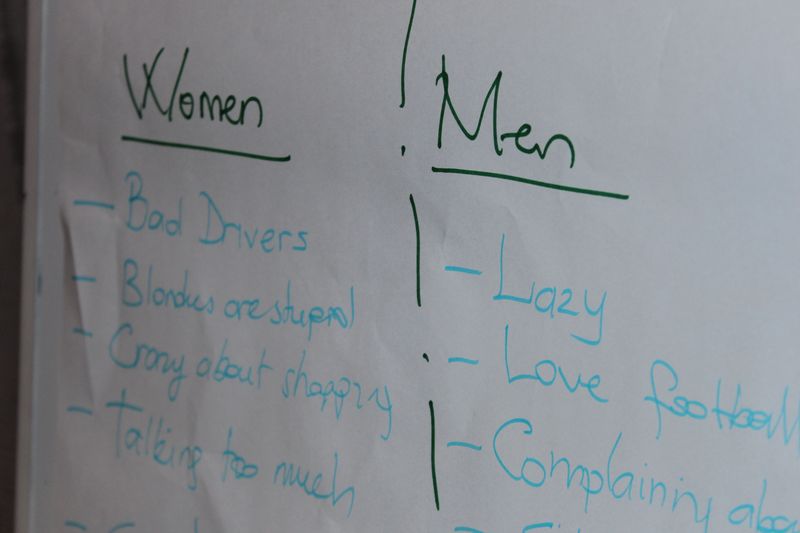 Women
- Bad Drivers
- Blondes are stupid
- Crazy about shopping
- Talking too much
Men
- Lazy
- Love football
- Complaining